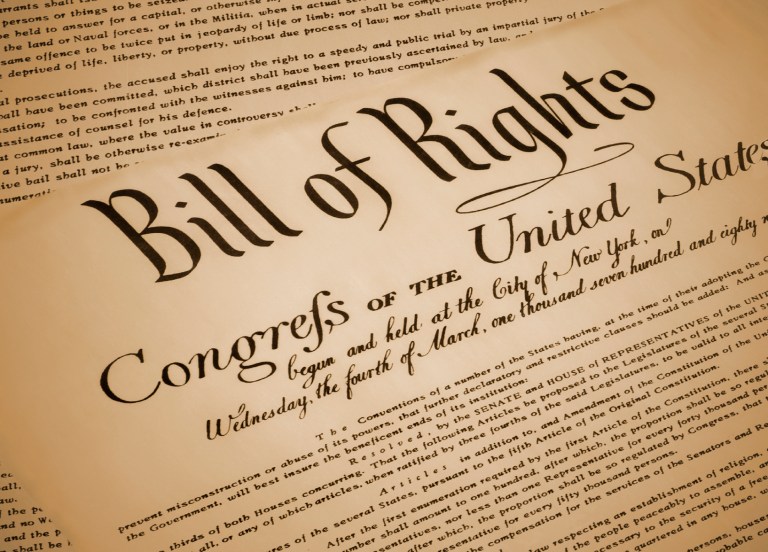 arrants shall issue, but
persons or things to be seized.
be held to answer for a capital, or otherwise in
the land or Naval forces, or in the Militia, when in actual ser
same offence to be twice put in jeopardy of life or limb; nor shall be compe
deprived of life, liberty, or property, without due process of law; nor shall private property
al prosecutions, the accused shall enjoy the right to a speedy and public trial by an impartial jury of the
all have been committed, which district shall have been previously ascertained by law, and
sation; to be confronted with the witnesses against him; to have compulsor
assistance of counsel for his defence.
t common law, where the value in controversy shall
a jury, shall be otherwise re-exami
ive bail shall not be
enumerati
Bill of Rights
Congreſs OF THE United States
begun and held at the City of New York, on
Wednesday, the fourth of March, one thousand seven hundred and eighty n
The Conventions of a number of the States having, at the time of their adopting the C
prevent misconstruction or abuse of its powers, that further declaratory and restrictive clauses should be added: And as
the Government, will best insure the beneficent ends of its institution:
Resolved, by the SENATE and HOUSE of REPRESENTATIVES of the UNIT
thirds of both Houses concurring. That the following Articles be proposed to the Legislatures of the several St
all, or any of which articles, when ratified by three fourths of the said Legislatures, to be valid to all inte
Articles in addition to, and Amendment of the Constitution of the Un
ures of the several States, pursuant to the fifth Article of the Original Constitution.
After the first enumeration required by the first Article of the Constitution, there sh
number shall amount to one hundred, after which, the proportion shall be so regul
nor less than one Representative for every forty thousand pers
after which, the proportion shall be so regulated by Congress, that
representative for every fifty thousand persons.
compensation for the services of the Senators and Re
respecting an establishment of religion,
the people peaceably to assemble, an
necessary to the security of a free
quartered in any house, w